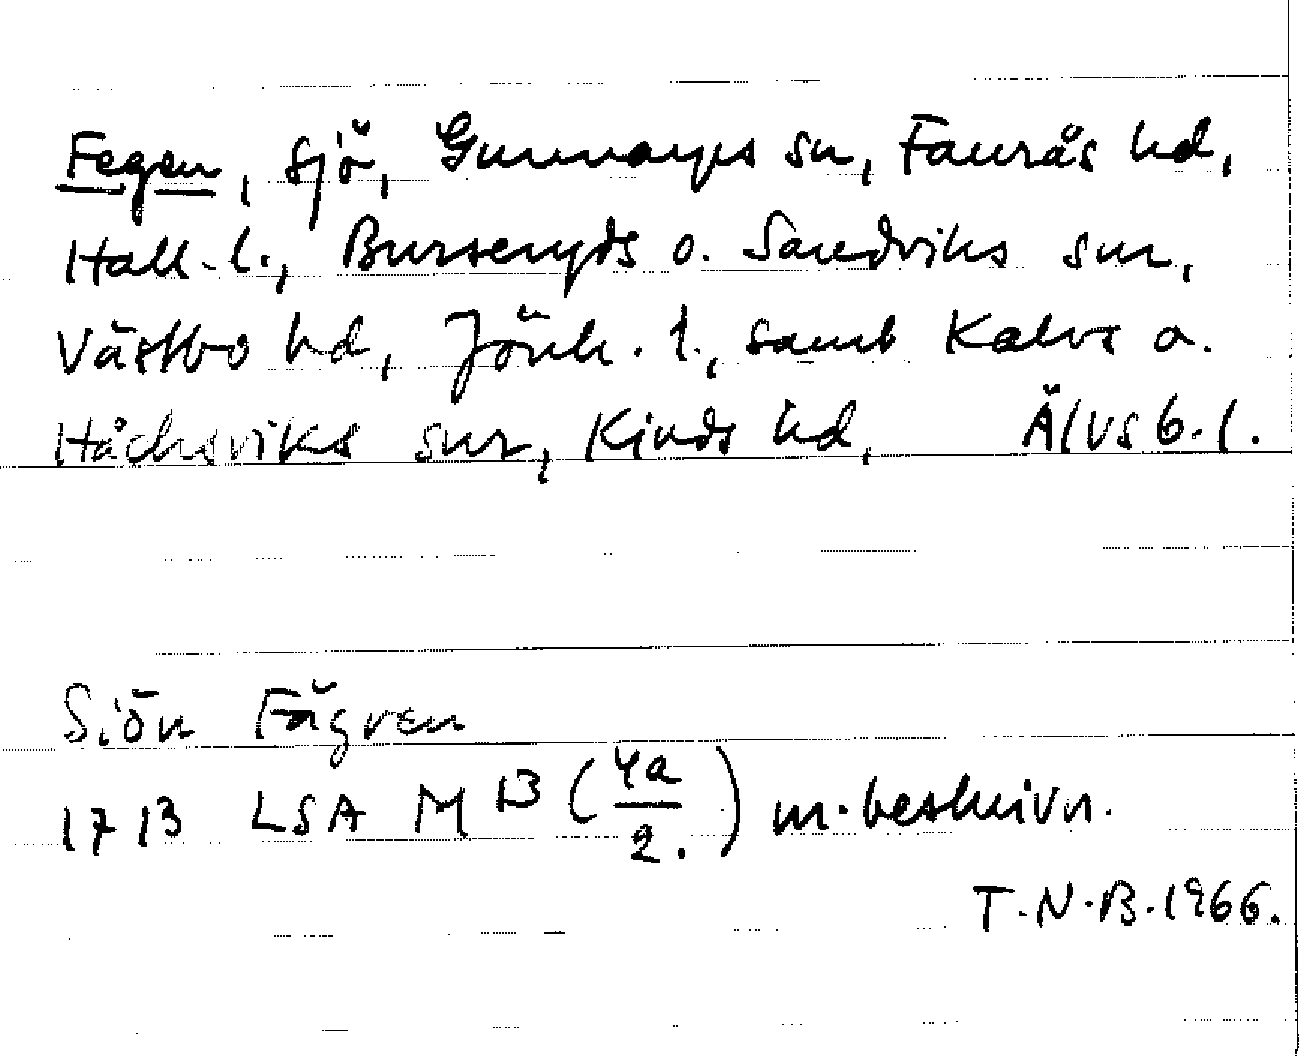 Fegen, sjö, Gunnarps sn, Faurås hd,
Hall. l., Burseryds o. Sandviks snr,
Västbo hd, Jönk. l., samt Kalvs o.
Håcksviks snr, Kinds hd, Älvsb. l.
Siön Fägren
1713 LSA M B (4a/2.) m. beskrivn.
T.N.B. 1966.